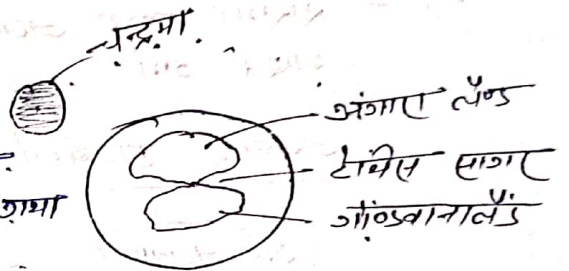 चन्द्रमा
अंगारा लैण्ड
टेथिस सागर
गोंडवानालैंड